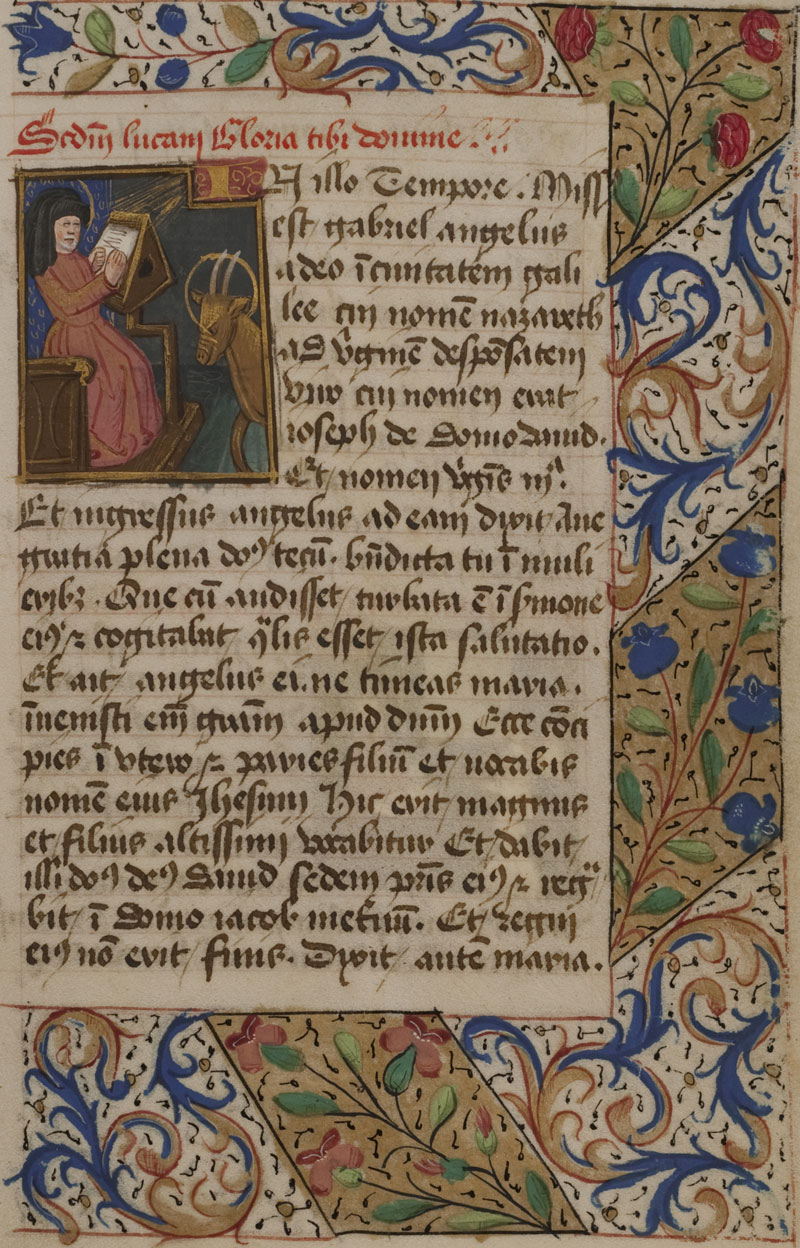 Scdm̄ lucam Gloria tibi domine.
N illo Tempore. Miss
est gabriel angelus
adeo ī ciuitatem gali
lee cui nomē nazareth
ad v̓ginē despōsatem
viro cui nomen erat
ioseph de domo dauid.
Et nomen v̓gīs mͣ.
Et ingressus angelus ad eam dixit Aue
gratia plena dn̄s tecū. bn̄dicta tu ī muli
eribꝫ. Que cū audisset turbata ē ī s̓mone
eiꝰ ⁊ cogitabat qͣlis esset ista salutatio.
Et ait angelus ei. ne timeas maria.
īuenisti em̄ gr̄am apud dūm Ecce cōci
pies ī vtero ⁊ paries filiū et vocabis
nomē eius Jhesum Hic erit magnus
et filius altissimi vocabitur Et dabit
illi dn̄s deꝰ dauid sedem pr̄is eiꝰ ⁊ regͣ
bit ī domo iacob in et̓nū. Et regni
eiꝰ nō erit finis. Dixit autē maria.